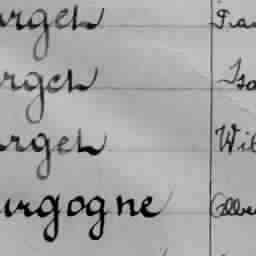 urgeh Fra
rgeh Isa
urgeh Wil
urgogne Albe